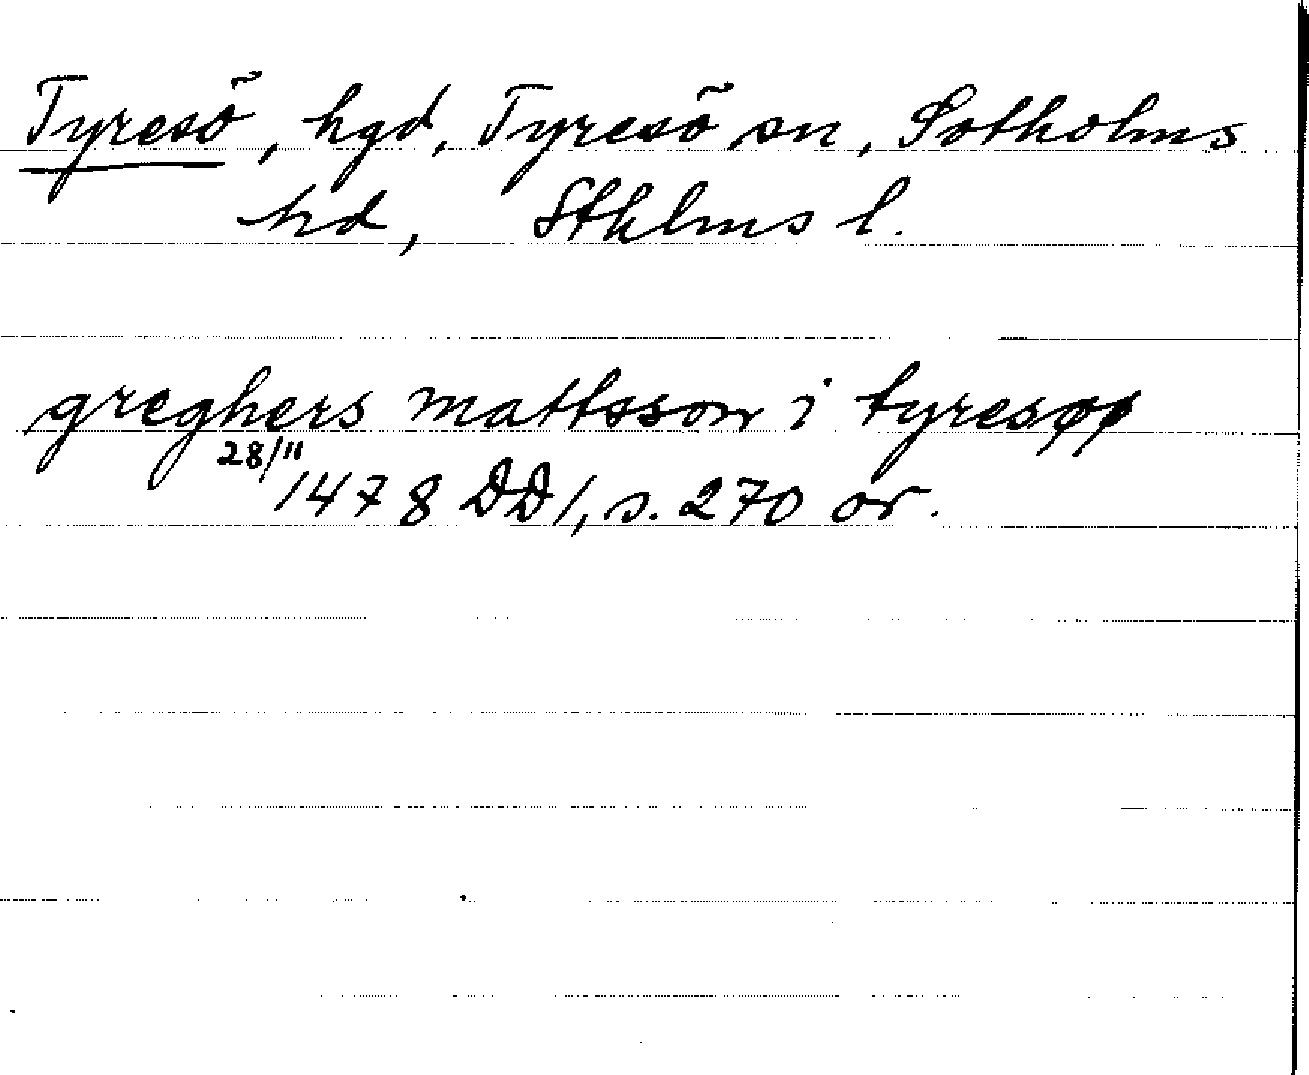 Tyresö, hgd, Tyresö sn, Sotholms
hd, Sthlms l.
greghers mattsson i tyresøø
28/11
1478 DD1, s. 270 or.